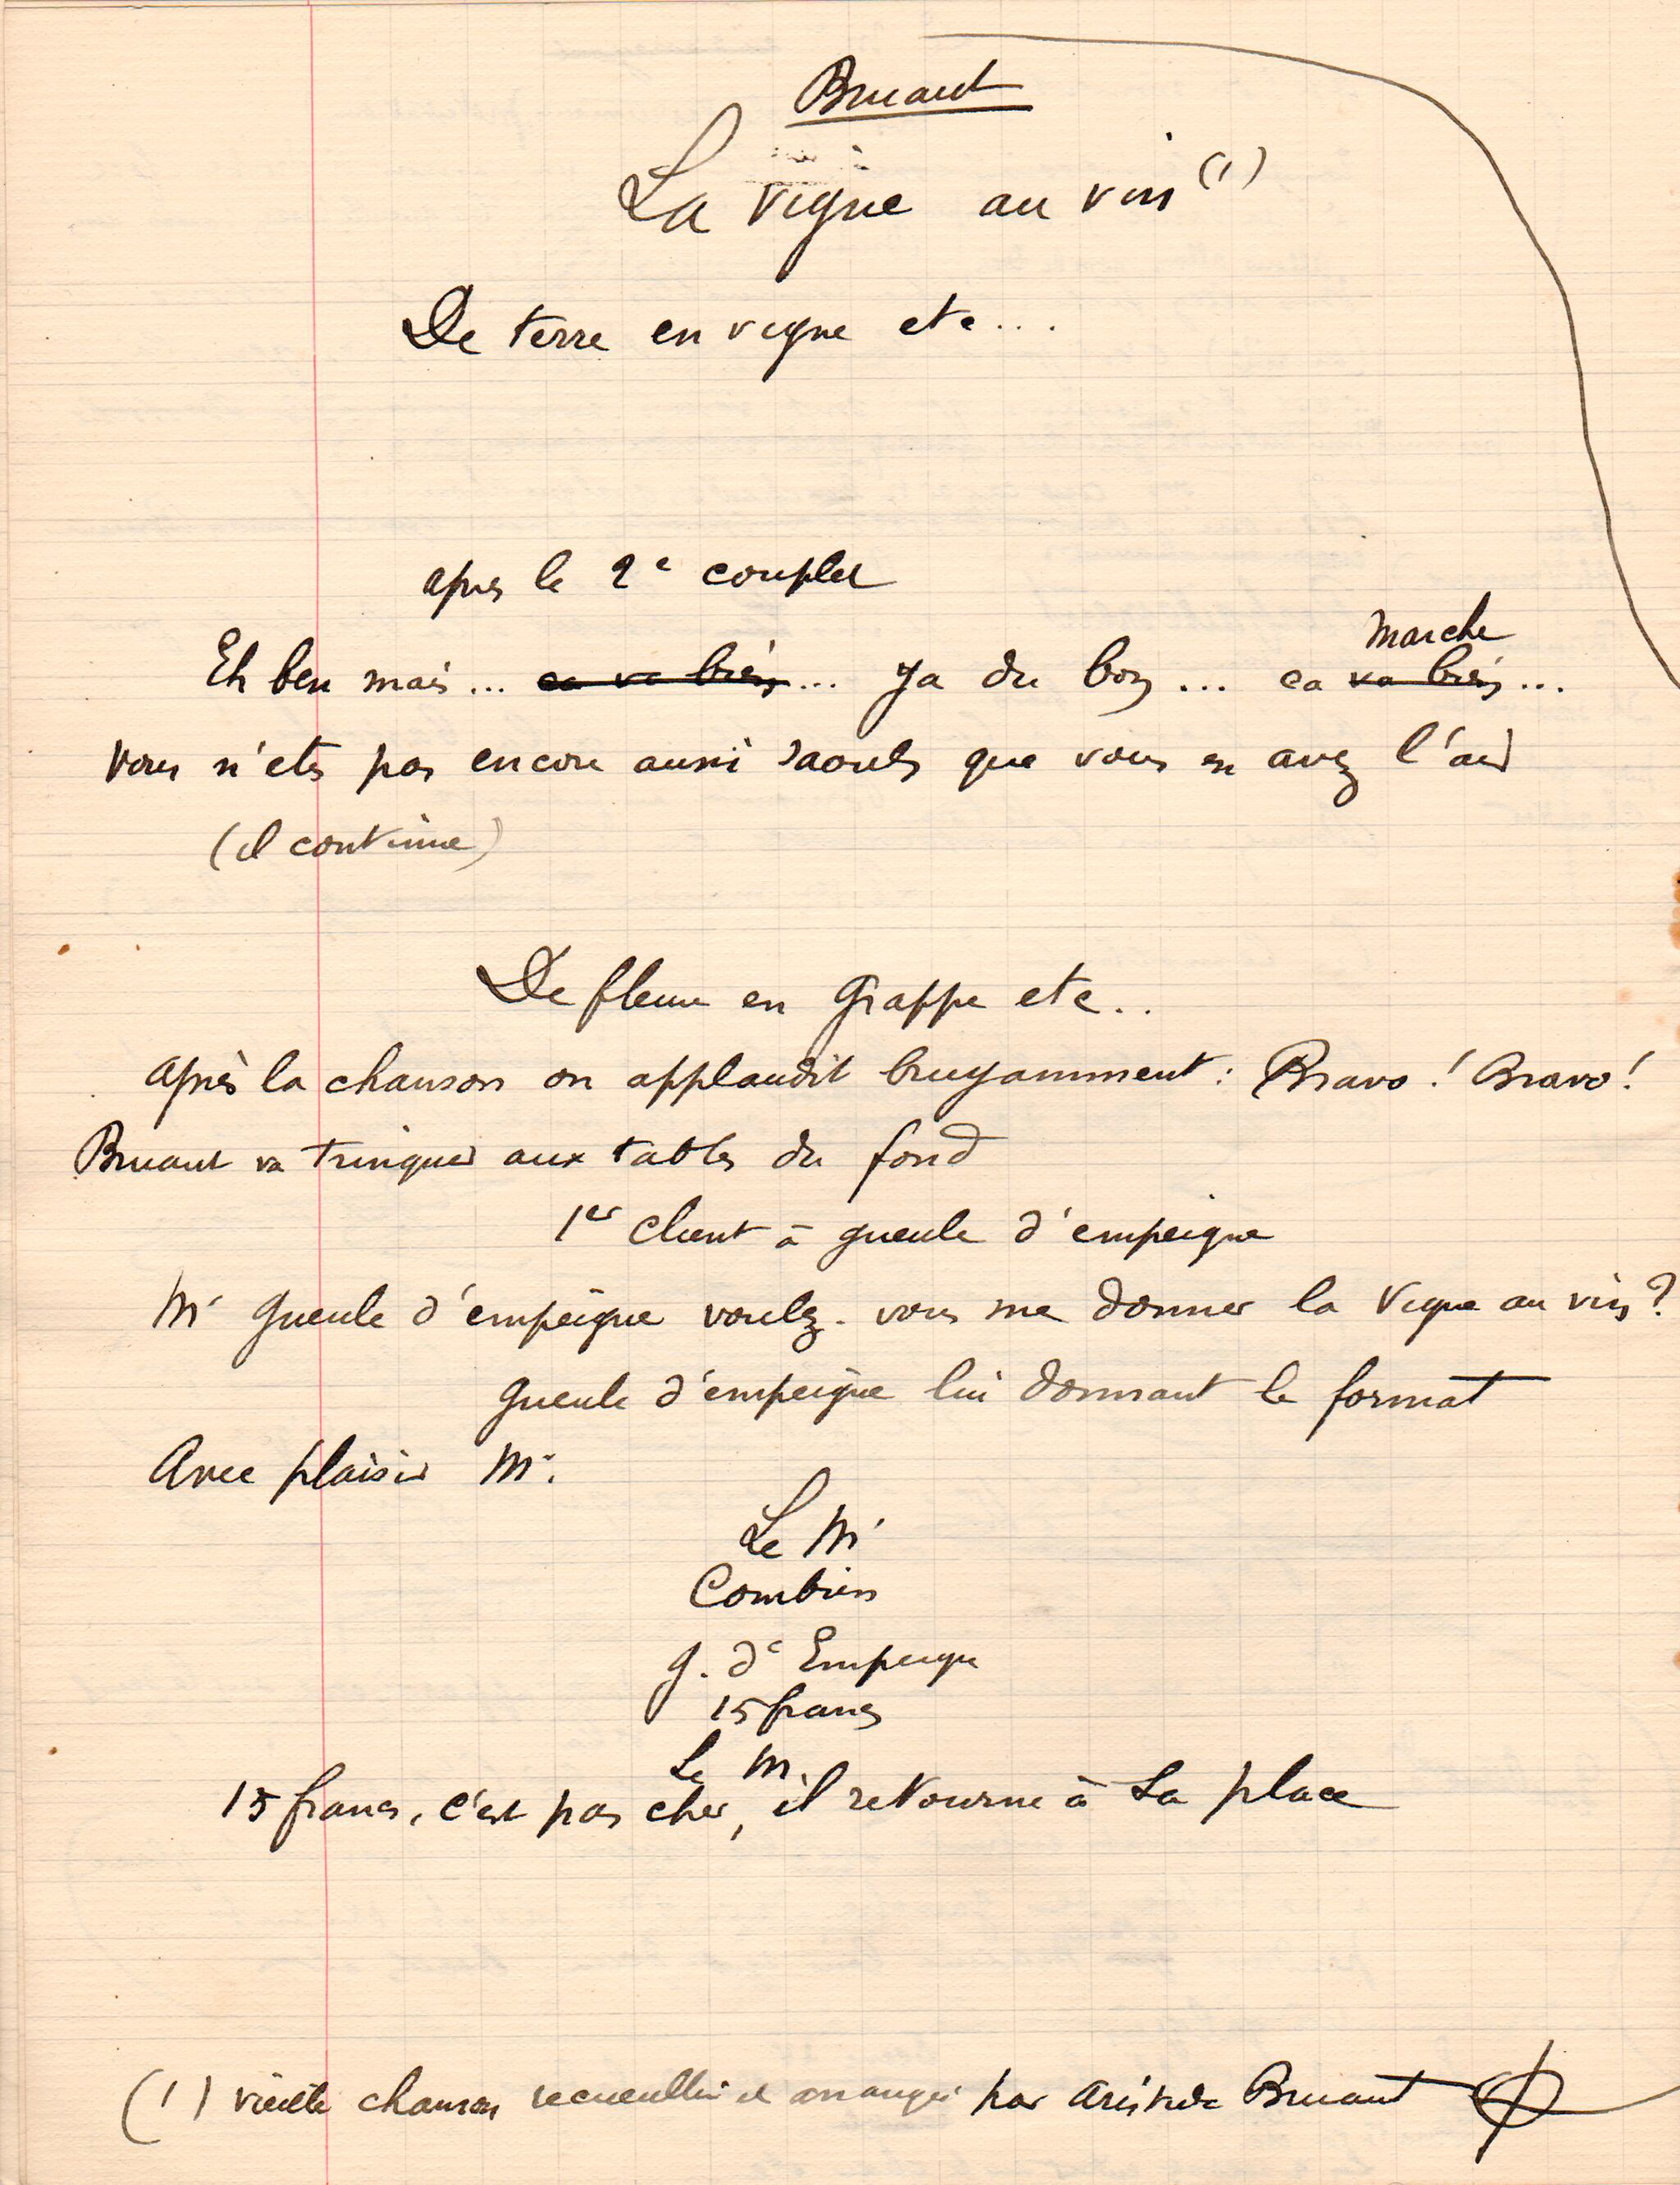 Bruant
La vigne au vin (1)
De terre en vigne etc...
après le 2e couplet
marche
Eh ben mais... ca va bien... ya du bon... ca va bien...
Vous n'etes pas encore aussi saouls que vous en avez l'air
(il continue)
De fleur en grappe etc..
après la chanson on applaudit bruyamment : Bravo ! Bravo !
Bruant va trinquer aux tables du fond
1er client à gueule d'empeigne
Mr gueule d'empeigne voulez-vous me donner la Vigne au vin ?
gueule d'empeigne lui donnant le format
Avec plaisir Mr.
Le Mr
Combien
g. d'Empeigne
15 francs
Le M.
15 francs, c'est pas cher, il retourne à sa place
(1) vieille chanson recueillie et arrangée par Aristide Bruant